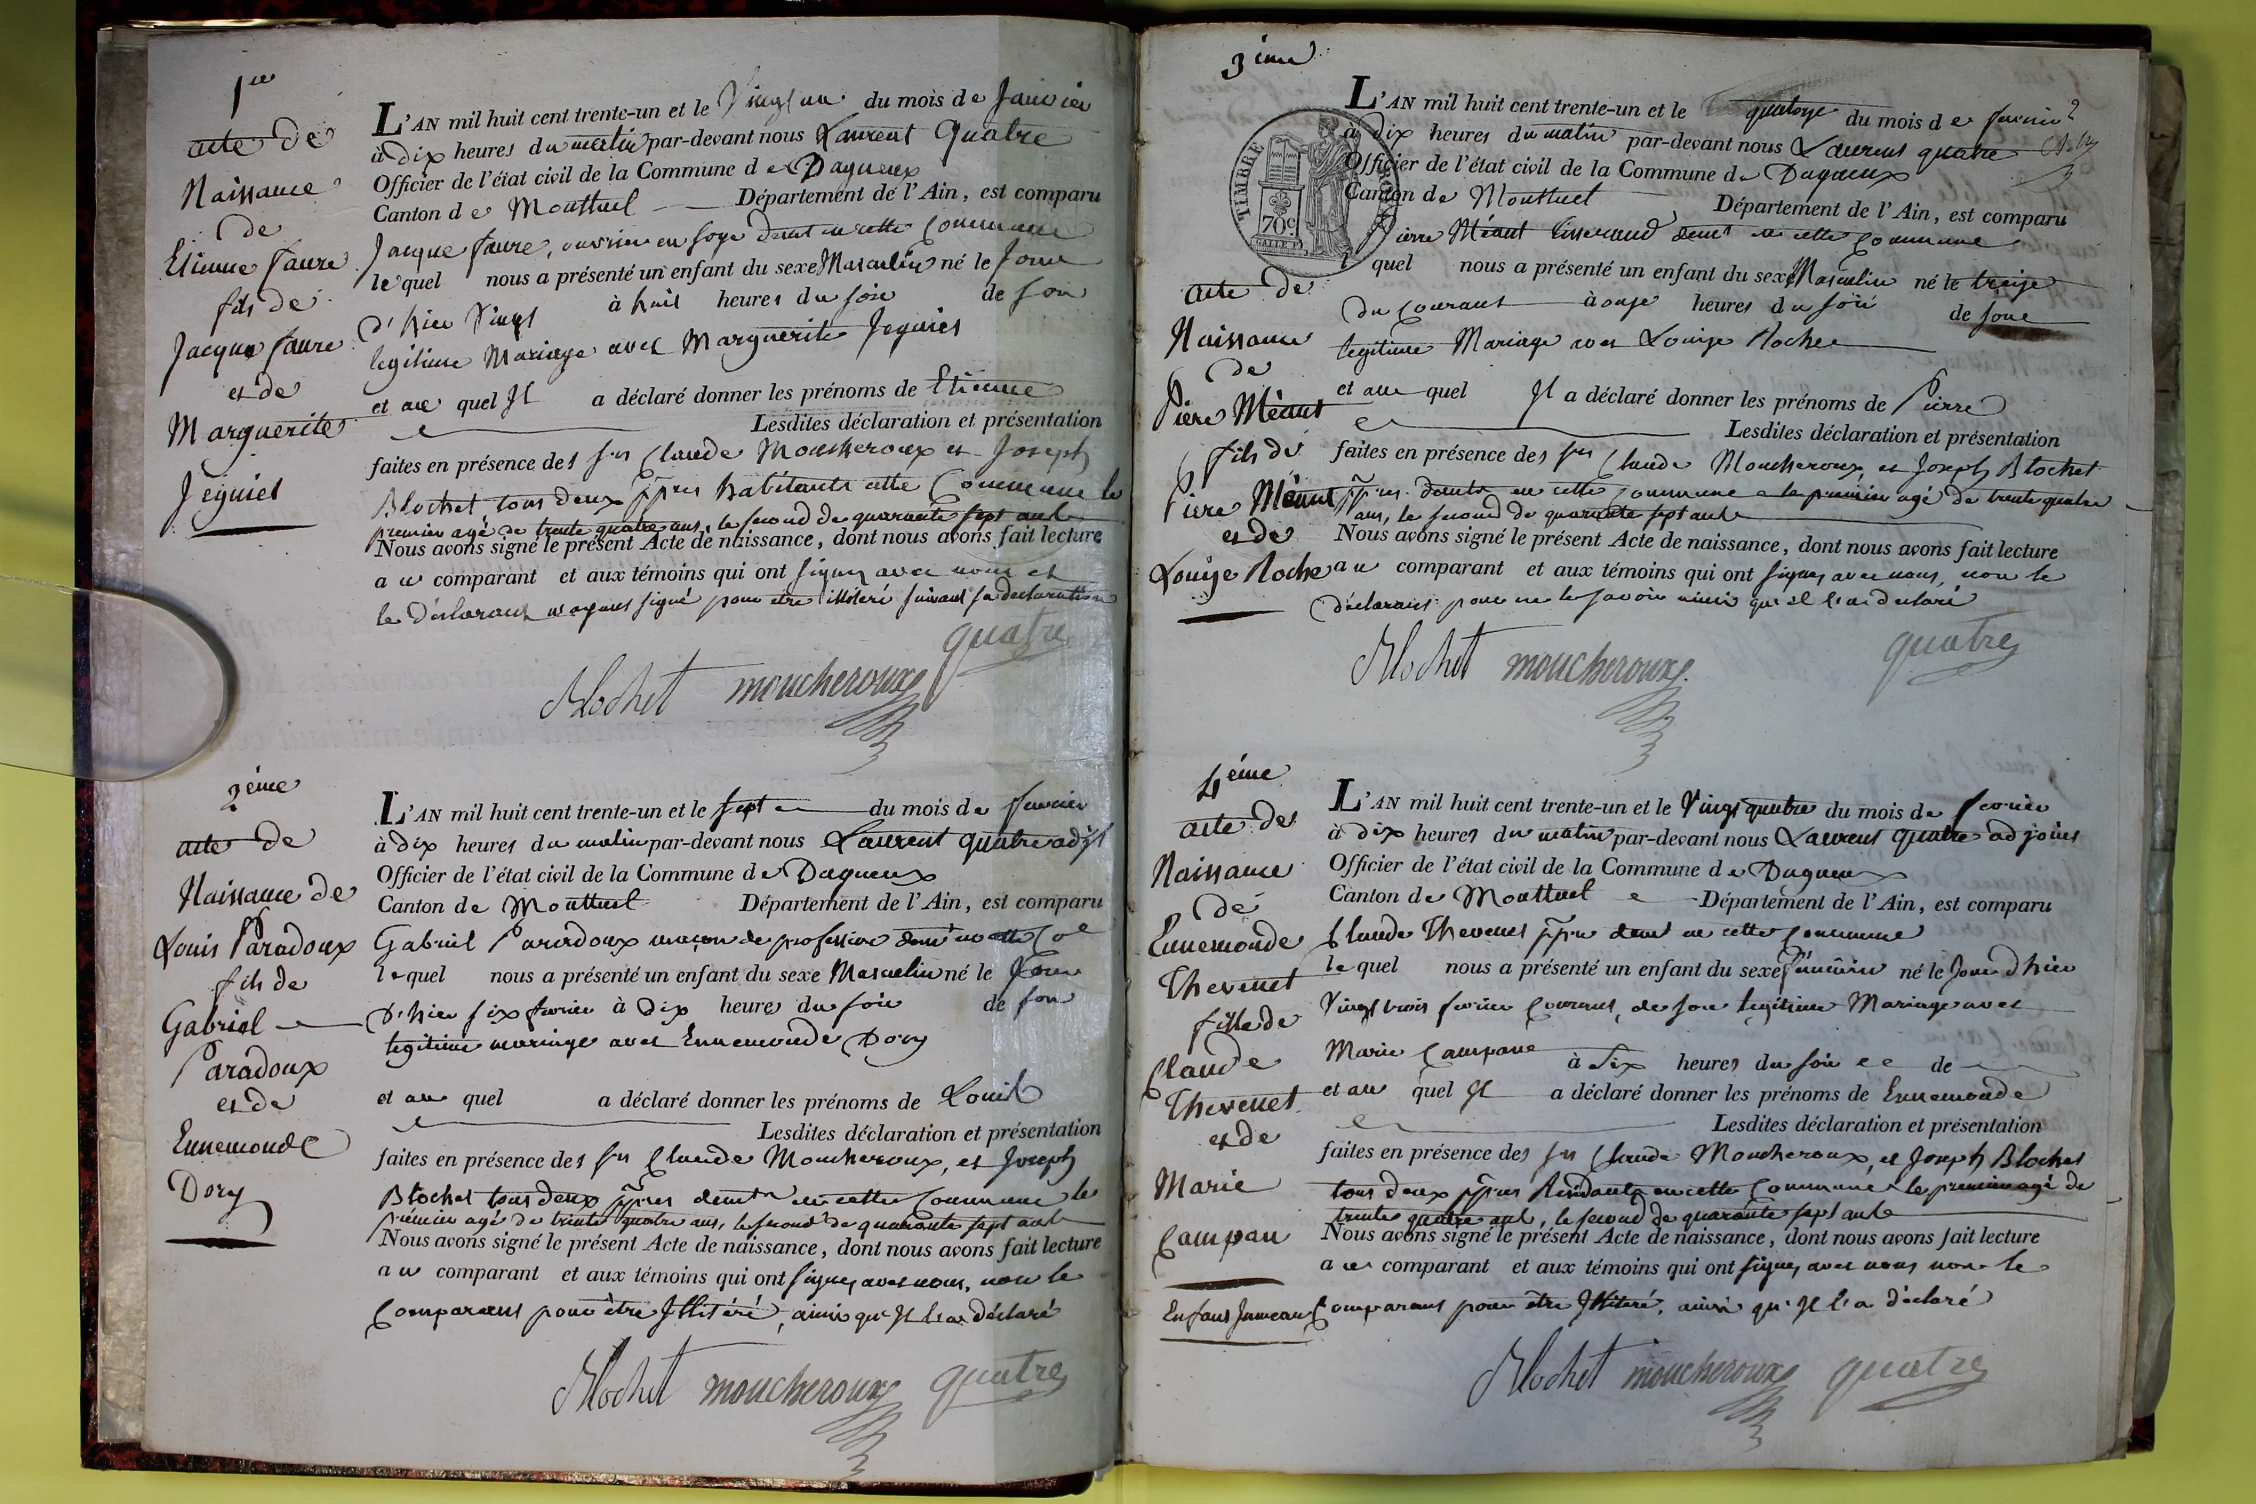 1er
acte de
Naissance
de
Etienne faure
fils de
Jacque faure
et de
Marguerite
Jeguiel
L'AN mil huit cent trente-un et le Vingt un du mois de Janvier
à dix heures du matin par-devant nous Laurent Quatre
Officier de l'état civil de la Commune de Dagneux
Canton de Montluel Département de l'Ain, est comparu
Jacque faure, ouvrier en soye demt en cette Commune
le quel nous a présenté un enfant du sexe Masculin né le Jour
d'hier Vingt à huit heures du soir de son
legitime Mariage avec Marguerite
et au quel Il a déclaré donner les prénoms de Etienne
Lesdites déclaration et présentation
faites en présence des srs Claude Moucheroux et Joseph
Blochet, tous deux ppres habitants cette Commune le
premier agé de trente quatre ans, le second de quarante sept ans
Nous avons signé le présent Acte de naissance, dont nous avons fait lecture
au comparant et aux témoins qui ont signez avec nous et
le déclarant n'ayant signé pour etre illitéré suivant sa declaration
quatre
Blochet moucheroux
2ème
acte de
Naissance de
Louis Paradoux
fils de
Gabriel
Paradoux
et de
Ennemonde
Dory
L'AN mil huit cent trente-un et le sept du mois de fevrier
à dix heures du matin par-devant nous Laurent quatre adjt
Officier de l'état civil de la Commune de Dagneux
Canton de Montluel Département de l'Ain, est comparu
Gabriel Paradoux maçon de profession demt en cette Coe
le quel nous a présenté un enfant du sexe Masculin né le Jour
D'hier six fevrier à dix heures du soir de son
legitime mariage avec Ennemonde Dory
et au quel a déclaré donner les prénoms de Louis
Lesdites déclaration et présentation
faites en présence des srs Claude Moucheroux, et Joseph
Blochet tous deux ppres demts en cette Commune le
prémier agé de trente quatre ans, le second de quarante sept ans
Nous avons signé le présent Acte de naissance, dont nous avons fait lecture
au comparant et aux témoins qui ont signez avec nous, non le
Comparant pour être Illitéré, ainsi qu'Il l'a déclaré
Blochet moucheroux quatre
3ème
TIMBRE
70c
acte de
Naissance
de
Piere Méant
fils de
Piere Méant
et de
Louise Roche
L'AN mil huit cent trente-un et le quatorze du mois de fevrier
à dix heures du matin par-devant nous Laurent quatre
Officier de l'état civil de la Commune de Dagneux
Canton de Montluel Département de l'Ain, est comparu
Pierre Méant tisserand demt en cette Commune
quel nous a présenté un enfant du sexe Masculin né le treize
du courant à onze heures du soir de son
legitime Mariage avec Louise Roche
et au quel Il a déclaré donner les prénoms de Pierre
Lesdites déclaration et présentation
faites en présence des srs Claude Moucheroux, et Joseph Blochet
ppres demts en cette commune le premier agé de trente quatre
ans, le second de quarante sept ans
Nous avons signé le présent Acte de naissance, dont nous avons fait lecture
au comparant et aux témoins qui ont signez avec nous, non le
déclarant pour ne le savoir ainsi qu'il l'a declaré
Blochet moucheroux quatre
4ème
acte de
Naissance
de
Ennemonde
Thevenet
fille de
Claude
Thevenet
et de
Marie
Campan
Enfant Jumeau
L'AN mil huit cent trente-un et le Vingt quatre du mois de fevrier
à dix heures du matin par-devant nous Laurent Quatre adjoint
Officier de l'état civil de la Commune de Dagneux
Canton de Montluel Département de l'Ain, est comparu
Claude Thevenet ppre demt en cette Commune
le quel nous a présenté un enfant du sexe féminin né le Jour d'hier
Vingt trois fevrier Courant, de son legitime Mariage avec
Marie Campane à six heures du soir de
et au quel Il a déclaré donner les prénoms de Ennemonde
Lesdites déclaration et présentation
faites en présence des srs Claude Moucheroux, et Joseph Blochet
tous deux ppres Résidants en cette Commune le premier agé de
trente quatre ans, le second de quarante sept ans
Nous avons signé le présent Acte de naissance, dont nous avons fait lecture
au comparant et aux témoins qui ont signez avec nous non le
Comparant pour être Illitéré, ainsi qu'Il l'a déclaré
Blochet moucheroux quatre